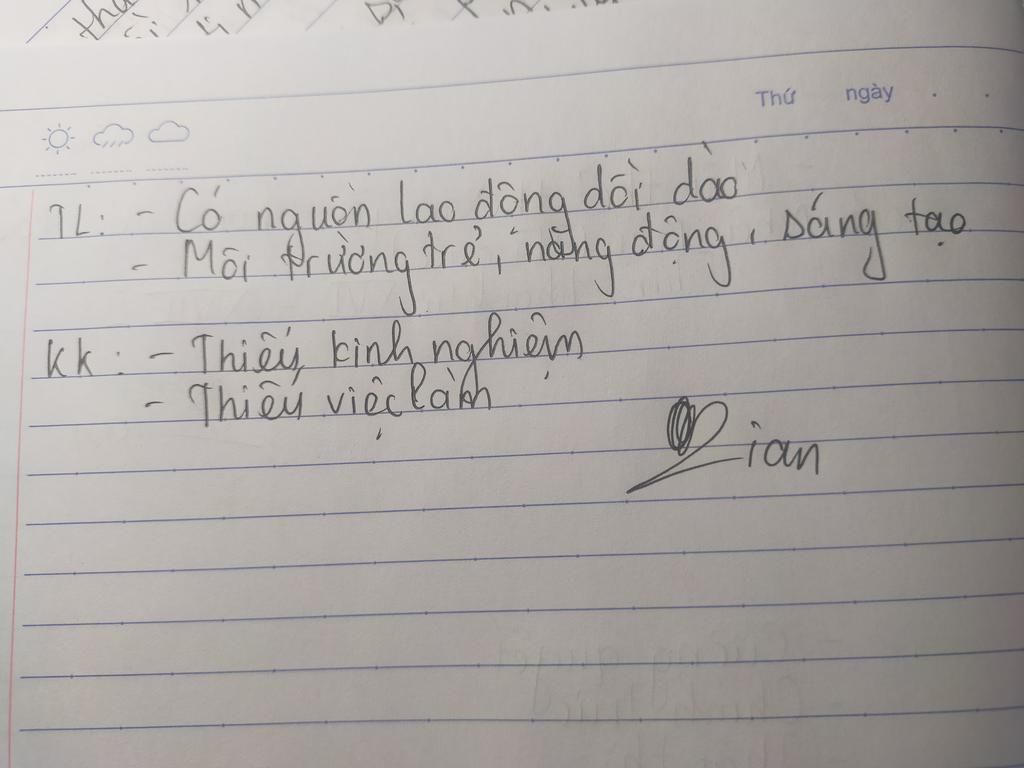 Thứ ngày
TL: - Có nguồn lao động dồi dào
- Môi trường trẻ, năng động, sáng tạo
KK: - Thiếu kinh nghiệm
- Thiếu việc làm
ian